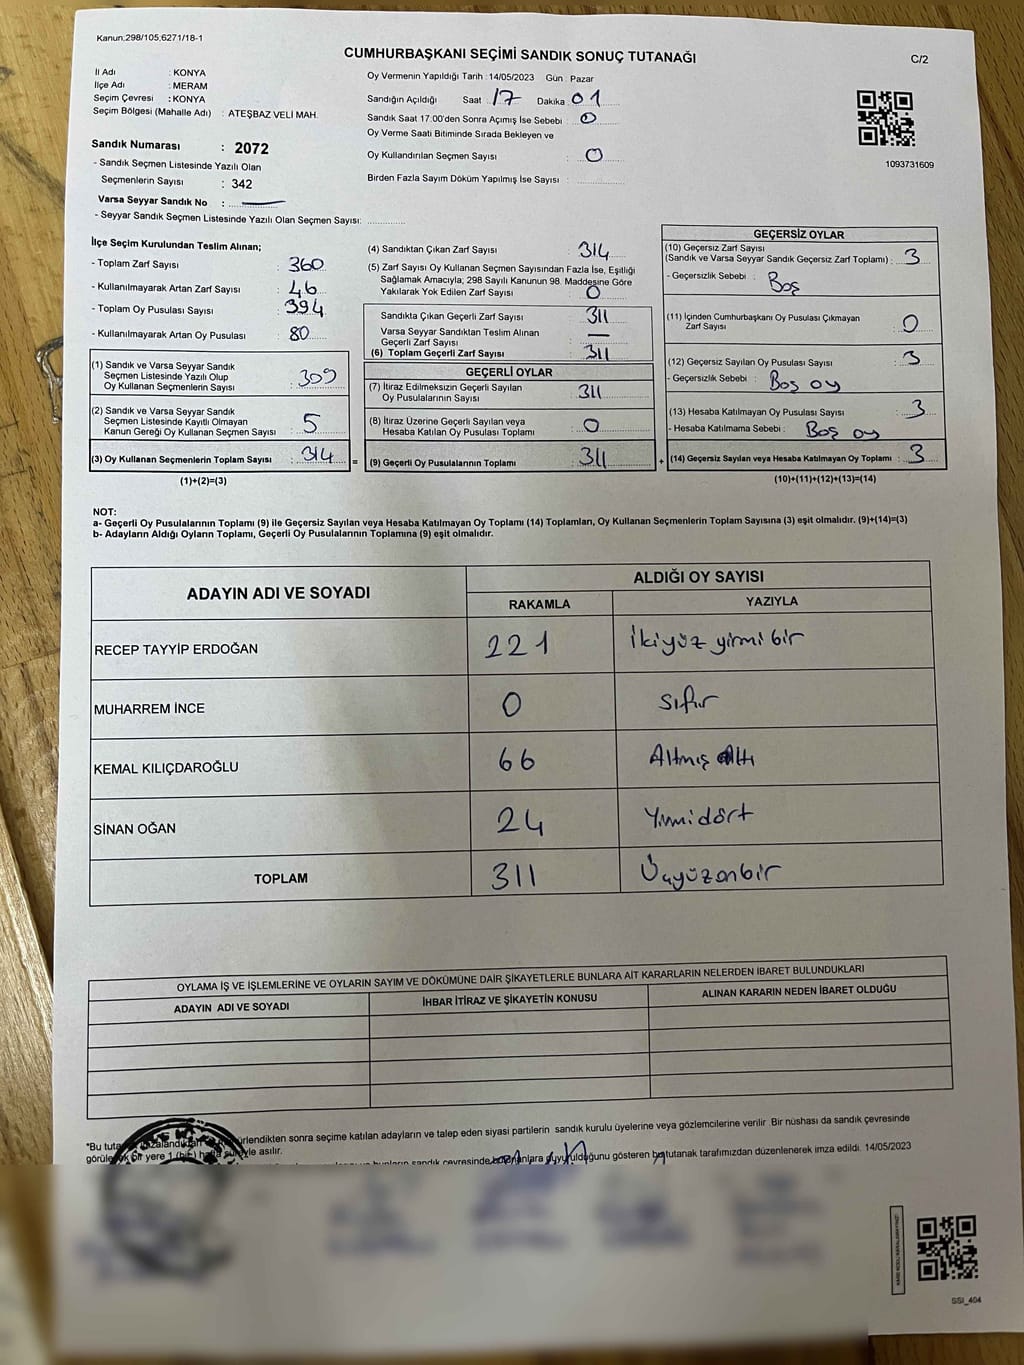 Kanun:298/105,6271/18-1
CUMHURBAŞKANI SEÇİMİ SANDIK SONUÇ TUTANAĞI
C/2
İl Adı : KONYA
İlçe Adı : MERAM
Seçim Çevresi : KONYA
Seçim Bölgesi (Mahalle Adı) : ATEŞBAZ VELİ MAH.
Oy Vermenin Yapıldığı Tarih : 14/05/2023 Gün : Pazar
Sandığın Açıldığı Saat : 17 Dakika 01
Sandık Saat 17:00'den Sonra Açımış İse Sebebi : 0
Oy Verme Saati Bitiminde Sırada Bekleyen ve
Oy Kullandırılan Seçmen Sayısı : 0
Birden Fazla Sayım Döküm Yapılmış İse Sayısı :
1093731609
Sandık Numarası : 2072
- Sandık Seçmen Listesinde Yazılı Olan
Seçmenlerin Sayısı : 342
Varsa Seyyar Sandık No : —
- Seyyar Sandık Seçmen Listesinde Yazılı Olan Seçmen Sayısı:
İlçe Seçim Kurulundan Teslim Alınan;
- Toplam Zarf Sayısı : 360
- Kullanılmayarak Artan Zarf Sayısı : 46
- Toplam Oy Pusulası Sayısı : 394
- Kullanılmayarak Artan Oy Pusulası : 80
(1) Sandık ve Varsa Seyyar Sandık
Seçmen Listesinde Yazılı Olup
Oy Kullanan Seçmenlerin Sayısı : 309
(2) Sandık ve Varsa Seyyar Sandık
Seçmen Listesinde Kayıtlı Olmayan
Kanun Gereği Oy Kullanan Seçmen Sayısı : 5
(3) Oy Kullanan Seçmenlerin Toplam Sayısı : 314 =
(1)+(2)=(3)
(4) Sandıktan Çıkan Zarf Sayısı : 314
(5) Zarf Sayısı Oy Kullanan Seçmen Sayısından Fazla İse, Eşitliği
Sağlamak Amacıyla; 298 Sayılı Kanunun 98. Maddesine Göre
Yakılarak Yok Edilen Zarf Sayısı : 0
Sandıkta Çıkan Geçerli Zarf Sayısı : 311
Varsa Seyyar Sandıktan Teslim Alınan
Geçerli Zarf Sayısı : —
(6) Toplam Geçerli Zarf Sayısı : 311
GEÇERLİ OYLAR
(7) İtiraz Edilmeksizin Geçerli Sayılan
Oy Pusulalarının Sayısı : 311
(8) İtiraz Üzerine Geçerli Sayılan veya
Hesaba Katılan Oy Pusulası Toplamı : 0
(9) Geçerli Oy Pusulalarının Toplamı : 311 +
GEÇERSİZ OYLAR
(10) Geçersiz Zarf Sayısı
(Sandık ve Varsa Seyyar Sandık Geçersiz Zarf Toplamı) : 3
- Geçersizlik Sebebi : Boş
(11) İçinden Cumhurbaşkanı Oy Pusulası Çıkmayan
Zarf Sayısı : 0
(12) Geçersiz Sayılan Oy Pusulası Sayısı : 3
- Geçersizlik Sebebi : Boş oy
(13) Hesaba Katılmayan Oy Pusulası Sayısı : 3
- Hesaba Katılmama Sebebi : Boş oy
(14) Geçersiz Sayılan veya Hesaba Katılmayan Oy Toplamı : 3
(10)+(11)+(12)+(13)=(14)
NOT:
a- Geçerli Oy Pusulalarının Toplamı (9) ile Geçersiz Sayılan veya Hesaba Katılmayan Oy Toplamı (14) Toplamları, Oy Kullanan Seçmenlerin Toplam Sayısına (3) eşit olmalıdır. (9)+(14)=(3)
b- Adayların Aldığı Oyların Toplamı, Geçerli Oy Pusulalarının Toplamına (9) eşit olmalıdır.
ADAYIN ADI VE SOYADI ALDIĞI OY SAYISI
RAKAMLA YAZIYLA
RECEP TAYYİP ERDOĞAN 221 İkiyüz yirmi bir
MUHARREM İNCE 0 sıfır
KEMAL KILIÇDAROĞLU 66 Altmış Altı
SİNAN OĞAN 24 Yirmidört
TOPLAM 311 Üçyüzonbir
OYLAMA İŞ VE İŞLEMLERİNE VE OYLARIN SAYIM VE DÖKÜMÜNE DAİR ŞİKAYETLERLE BUNLARA AİT KARARLARIN NELERDEN İBARET BULUNDUKLARI
ADAYIN ADI VE SOYADI İHBAR İTİRAZ VE ŞİKAYETİN KONUSU ALINAN KARARIN NEDEN İBARET OLDUĞU
*Bu sonra seçime katılan adayların ve talep eden siyasi partilerin sandık kurulu üyelerine veya gözlemcilerine verilir. Bir nüshası da sandık çevresinde
bir yere 1 (bir) hafta asılır.
sandık çevresinde duyurulduğunu gösteren tutanak tarafımızdan düzenlenerek imza edildi. 14/05/2023
SSI_404